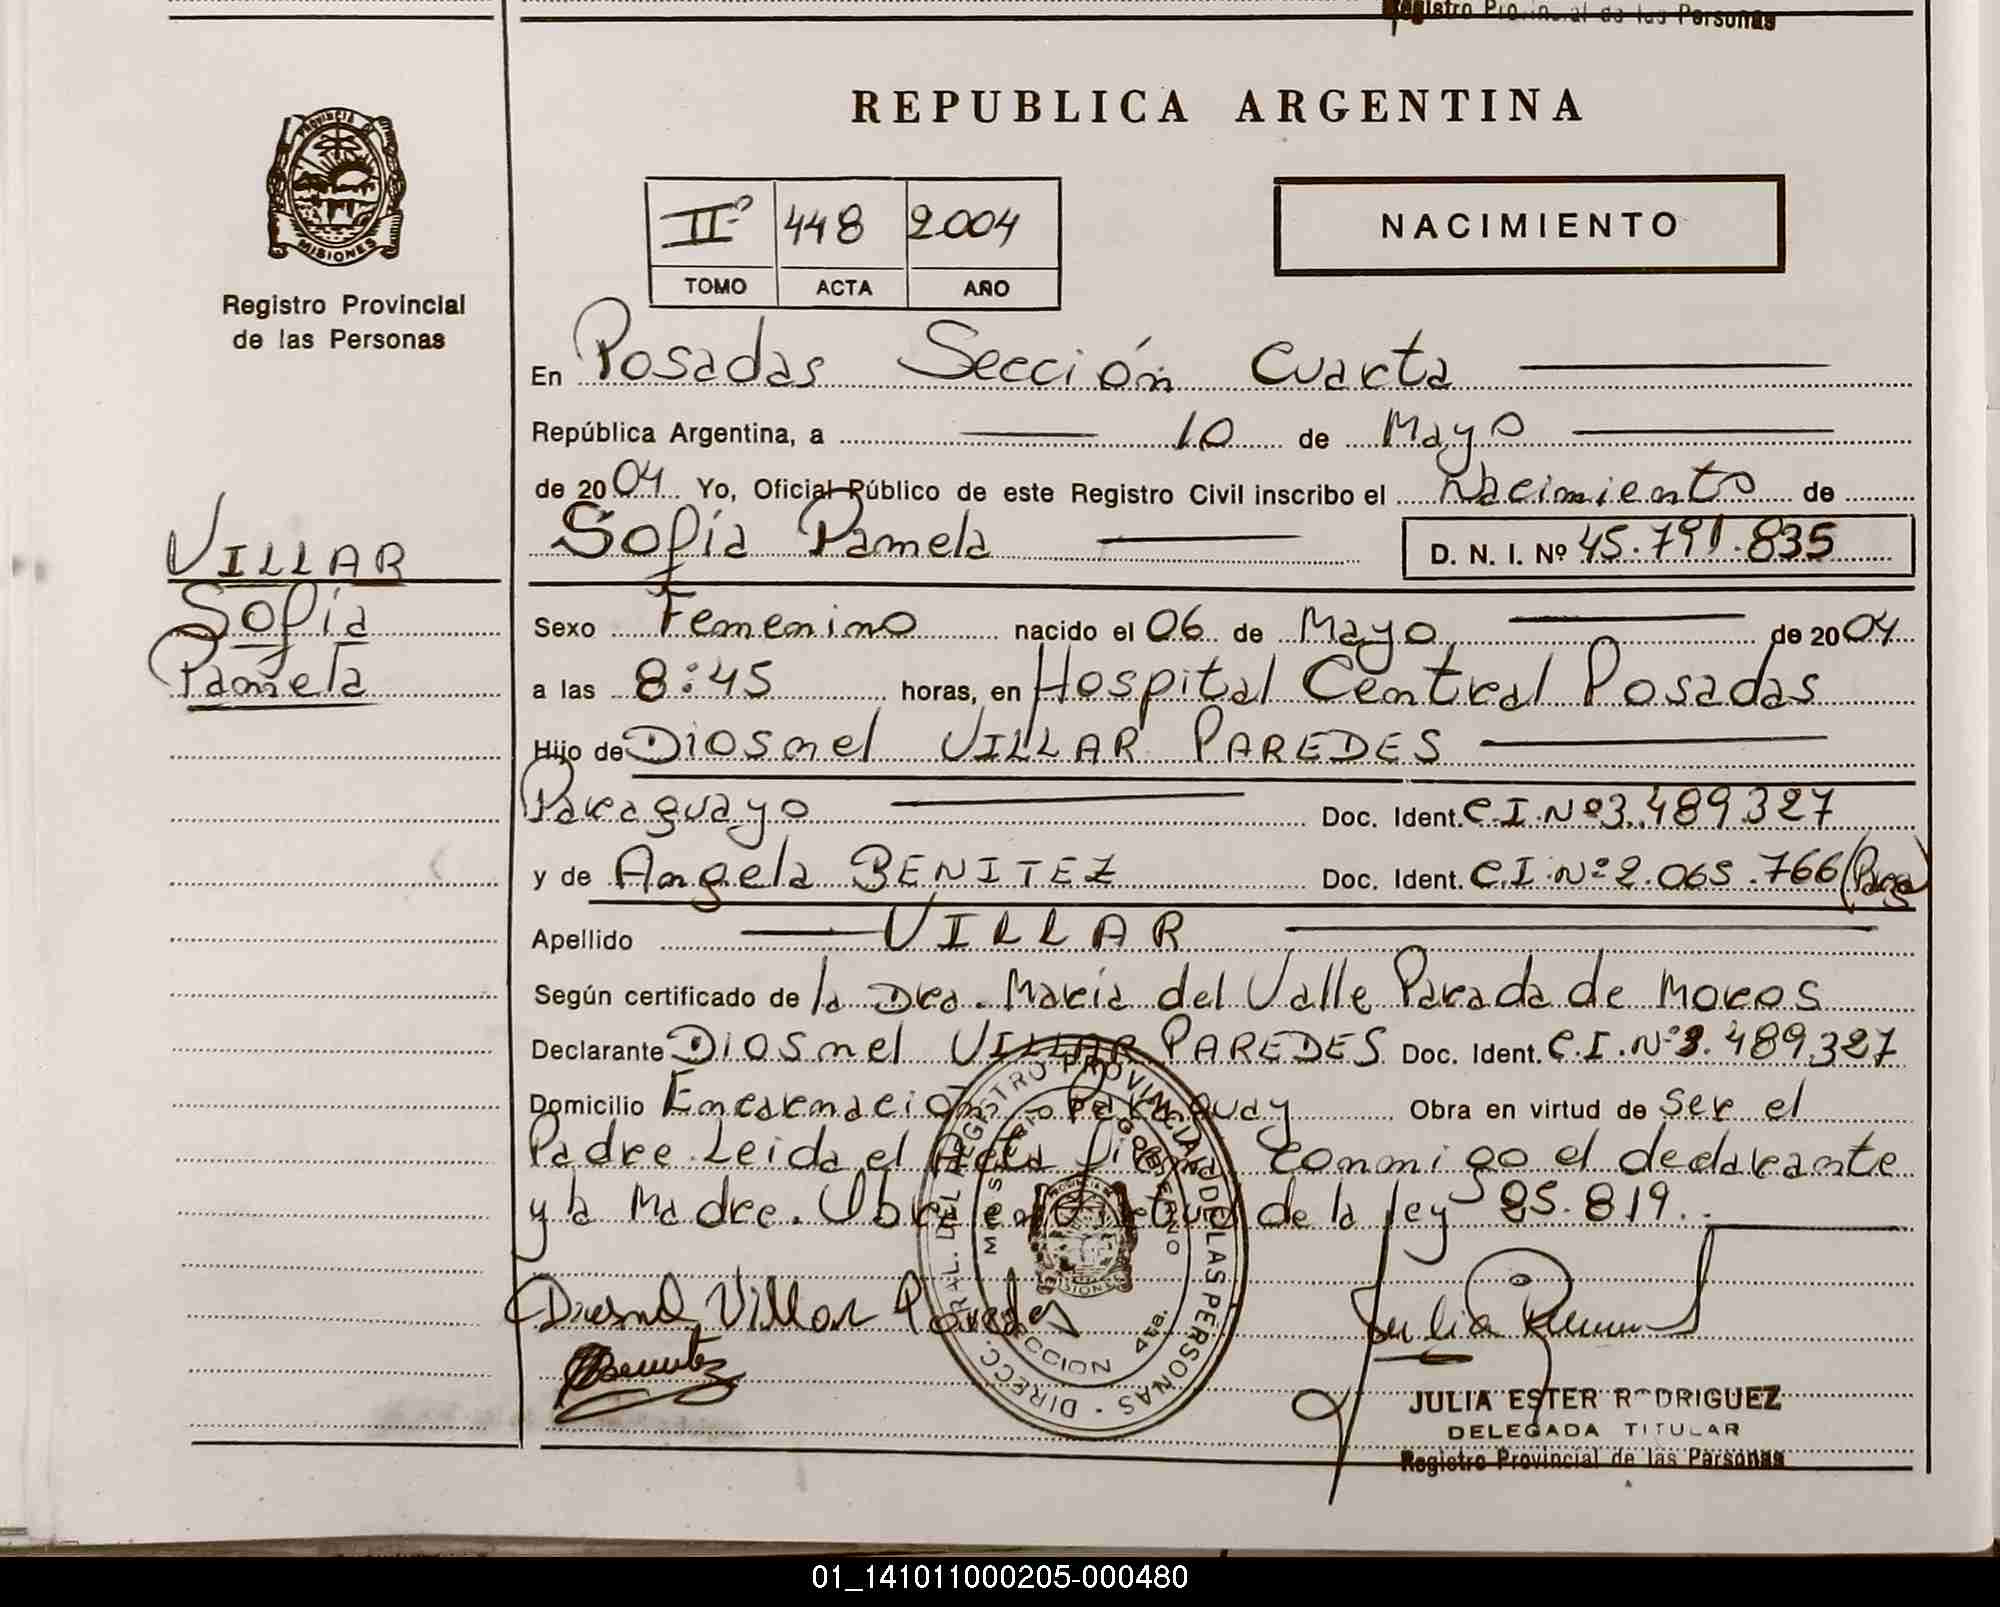 Registro Provincial de las Personas
PROVINCIA DE
MISIONES
Registro Provincial
de las Personas
REPUBLICA ARGENTINA
IIº 448 2004
TOMO ACTA AÑO
NACIMIENTO
En Posadas Sección Cuarta
República Argentina, a 10 de Mayo
de 2004 Yo, Oficial Público de este Registro Civil inscribo el Nacimiento de
Sofía Pamela D. N. I. Nº 45.791.835
VILLAR
Sofía
Pamela
Sexo Femenino nacido el 06 de Mayo de 2004
a las 8:45 horas, en Hospital Central Posadas
Hijo de Diosnel VILLAR PAREDES
Paraguayo Doc. Ident. C.I. Nº 3.489.327
y de Angela BENITEZ Doc. Ident. C.I. Nº 2.065.766 (Parag)
Apellido VILLAR
Según certificado de la Dra. María del Valle Parada de Moros
Declarante Diosnel VILLAR PAREDES Doc. Ident. C.I. Nº 3.489.327
Domicilio Encarnación - Paraguay Obra en virtud de ser el
Padre. Leida el Acta firma conmigo el declarante
y la Madre. Obra en virtud de la ley 25.819.
DIRECC. GRAL. DEL REGISTRO PROVINCIAL DE LAS PERSONAS
MINISTERIO DE GOBIERNO
PROVINCIA DE
MISIONES
SECCION 4ta.
Diosnel Villar Paredes
Benitez
JULIA ESTER RODRIGUEZ
DELEGADA TITULAR
Registro Provincial de las Personas
01_141011000205-000480